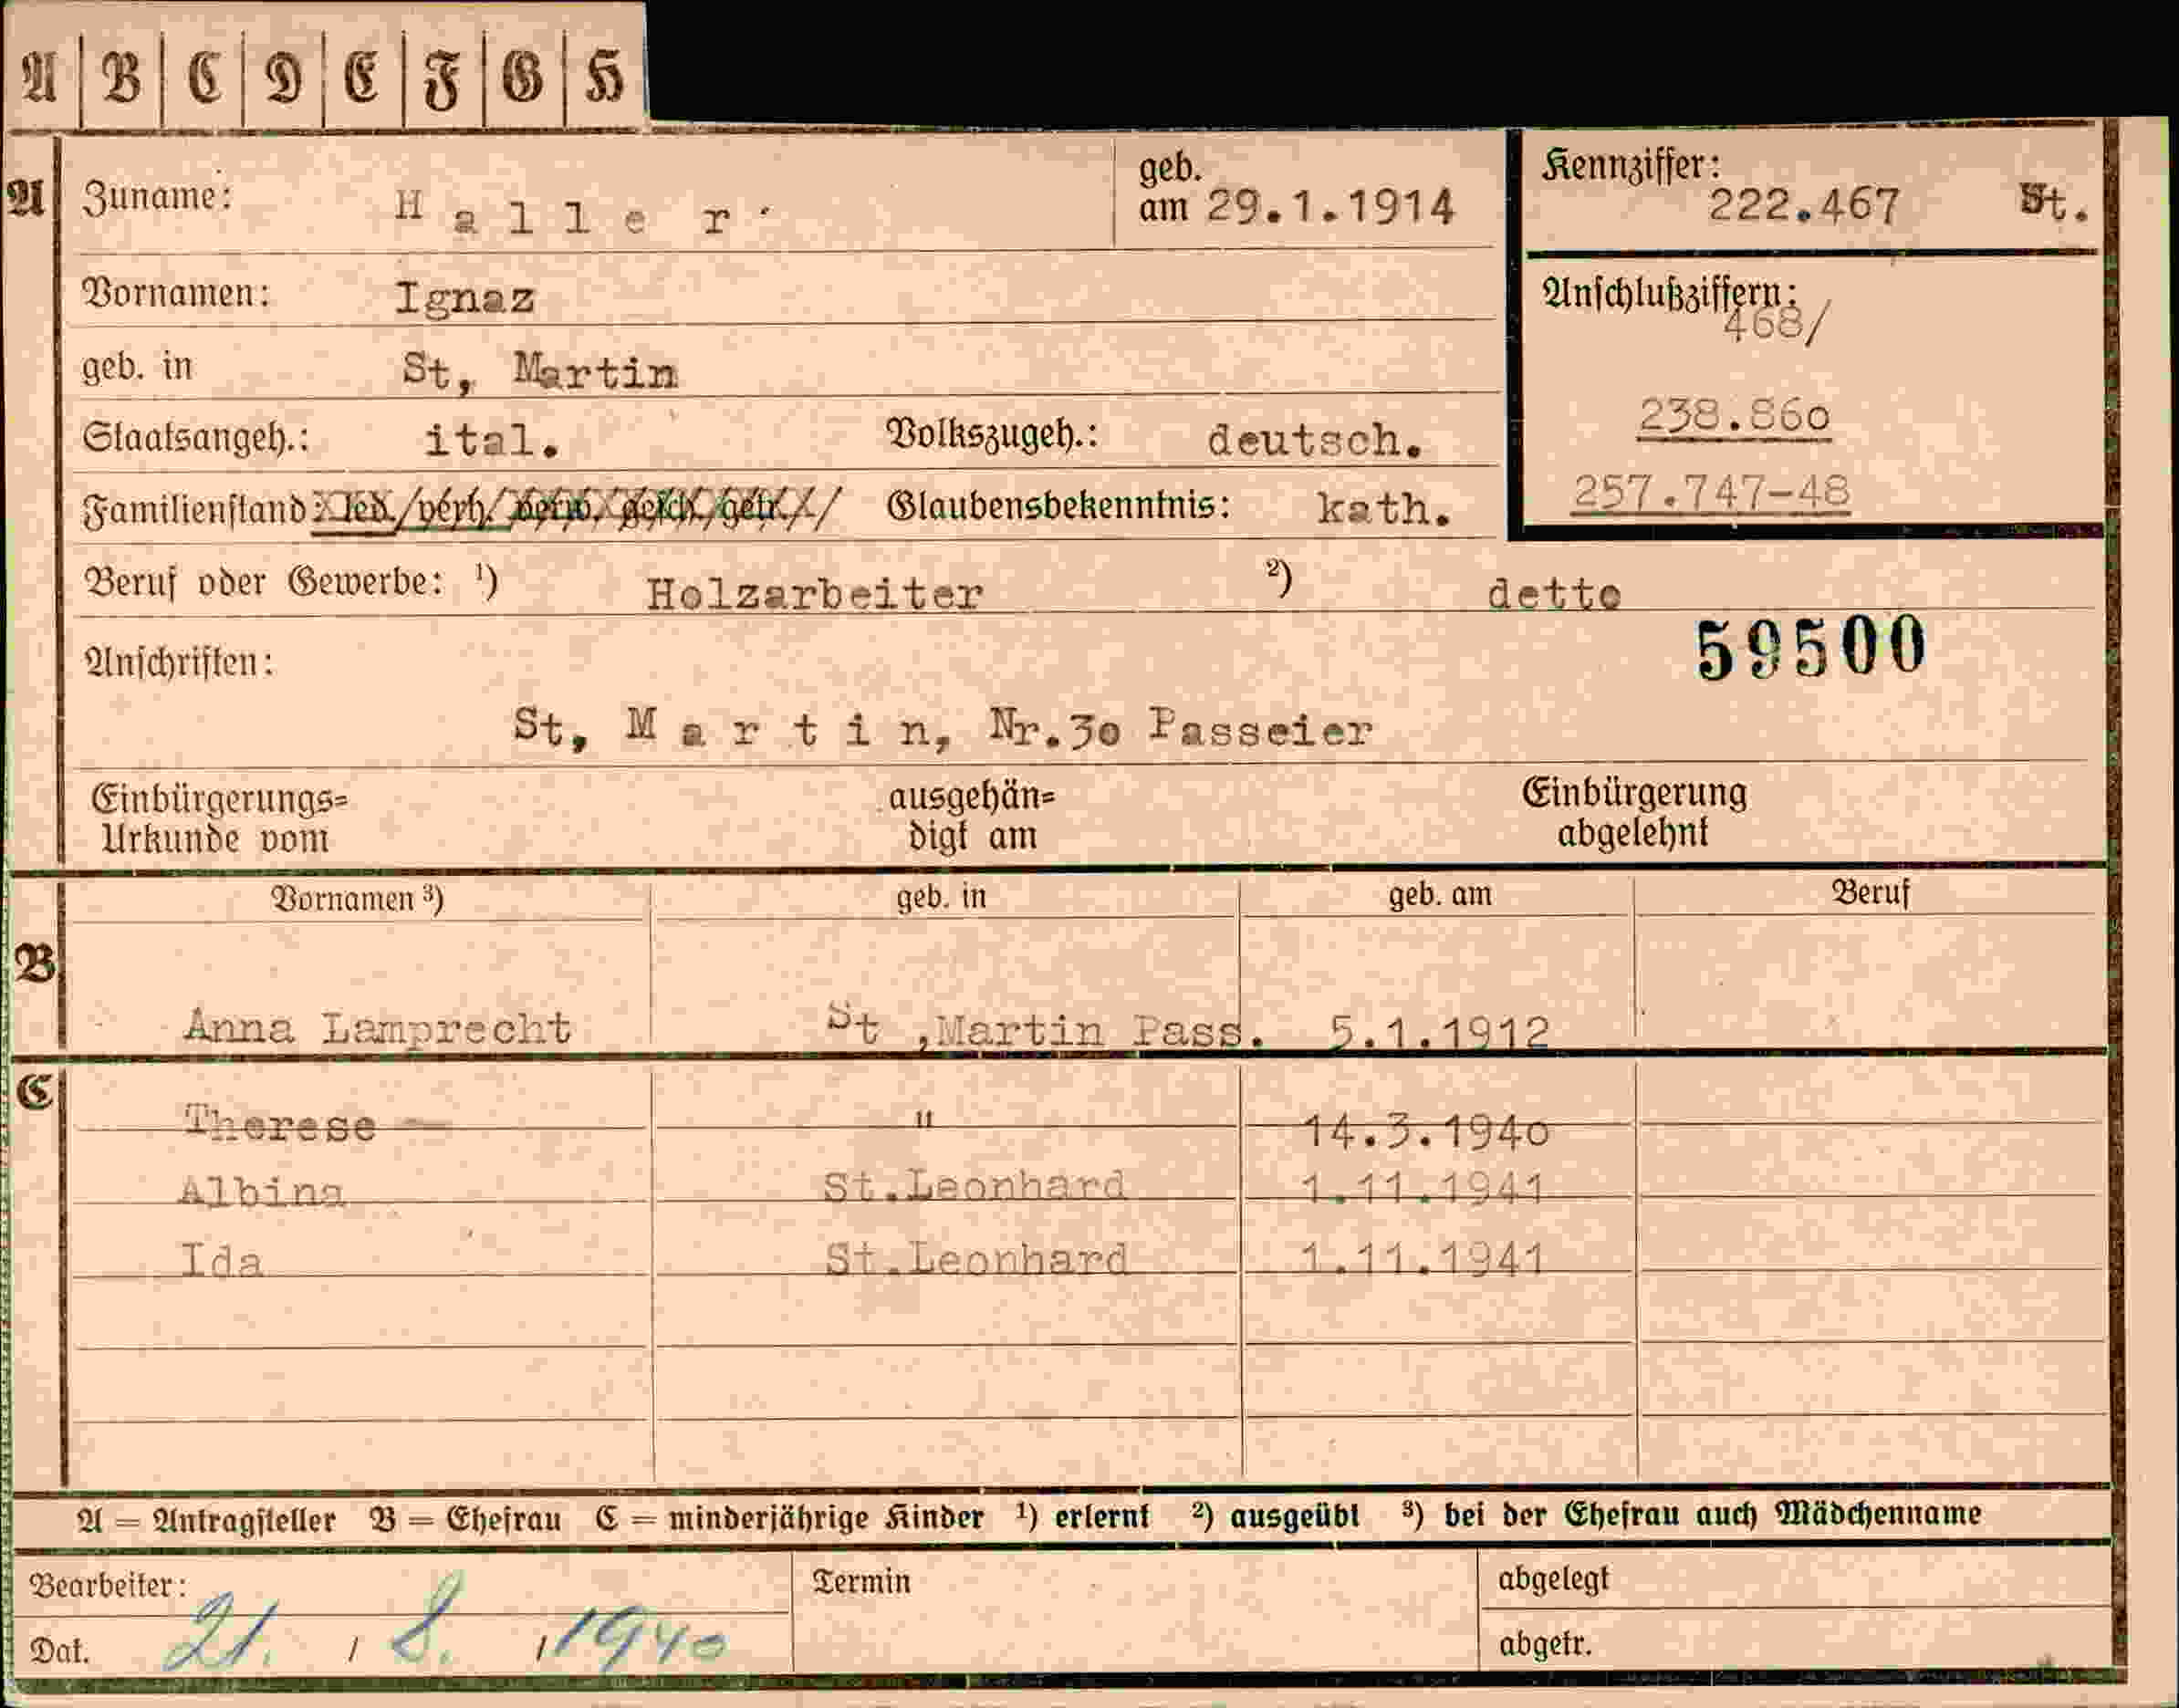 A B C D E F G H
A Zuname: H a l l e r geb. am 29.1.1914
Kennziffer: 222.467 St.
Vornamen: Ignaz
Anschlußziffern: 468/
geb. in St, Martin
238.86o
Staatsangeh.: ital. Volkszugeh.: deutsch.
257.747-48
Familienstand: led/verh/verw/gesch/getr// Glaubensbekenntnis: kath.
Beruf oder Gewerbe: ¹) Holzarbeiter ²) detto
59500
Anschriften:
St, M a r t i n, Nr.3o Passeier
Einbürgerungs=
Urkunde vom
ausgehän=
digt am
Einbürgerung
abgelehnt
Vornamen ³) geb. in geb. am Beruf
B
Anna Lamprecht St ,Martin Pass. 5.1.1912
C
Therese " 14.3.194o
Albina St.Leonhard 1.11.1941
Ida St.Leonhard 1.11.1941
A = Antragsteller B = Ehefrau C = minderjährige Kinder ¹) erlernt ²) ausgeübt ³) bei der Ehefrau auch Mädchenname
Bearbeiter: Termin abgelegt
Dat. 21. / 8. / 1940 abgetr.